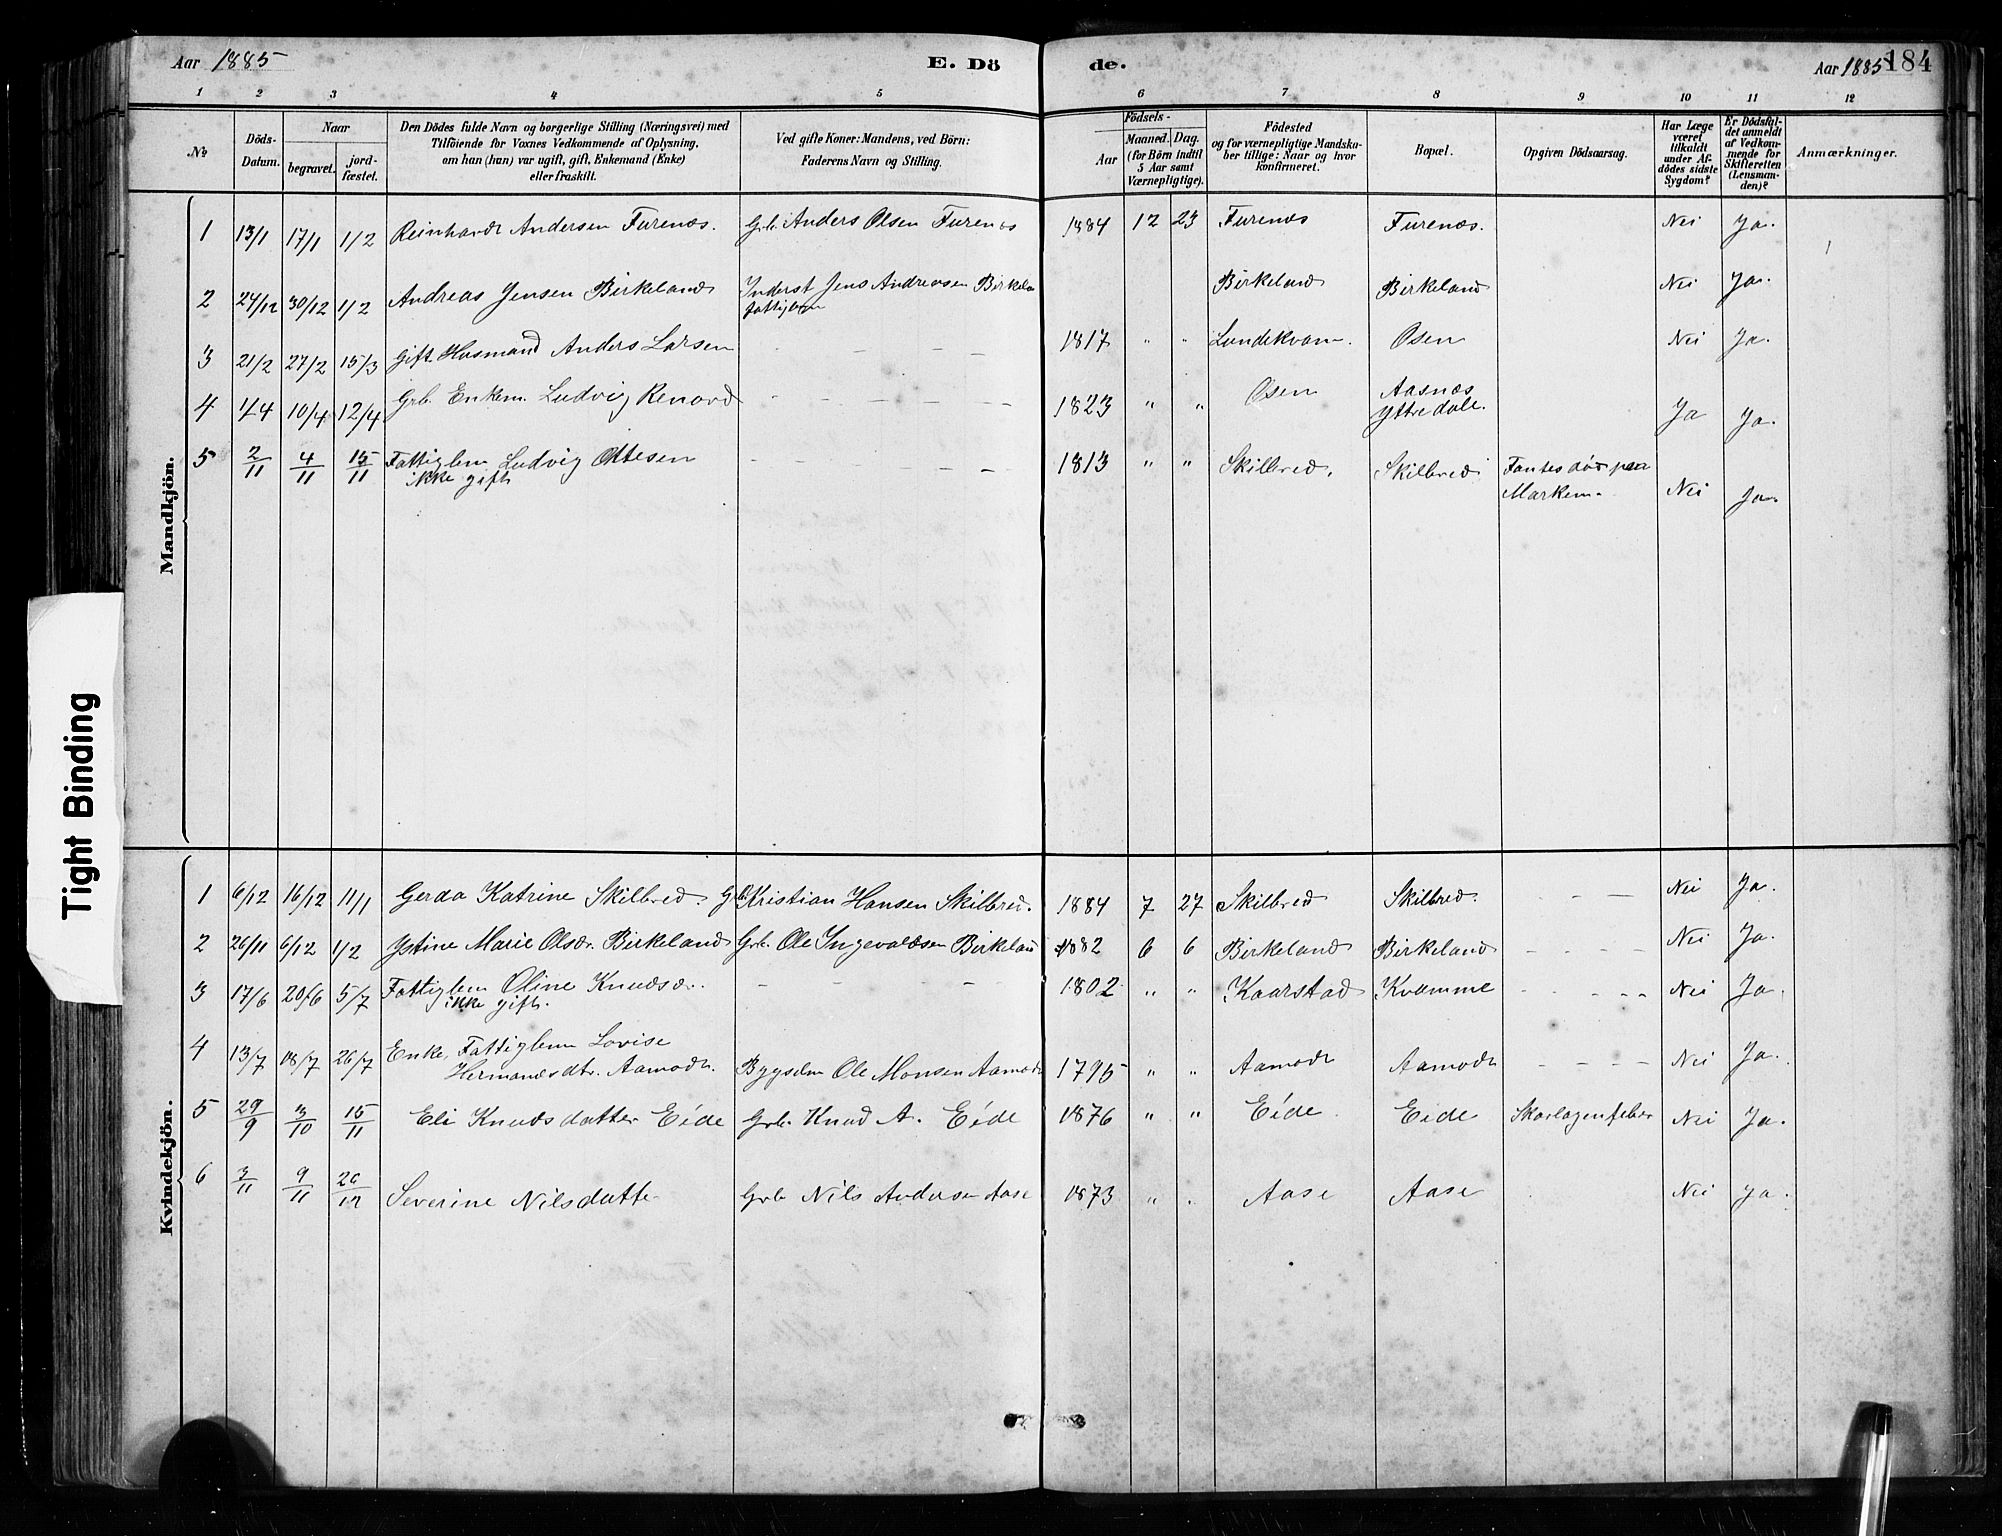 Aar 1885
E. Dö
de.
Aar 1885
184
1 2 3 4 5 6 7 8 9 10 11 12
No
Döds-
Datum.
Naar
begravet.
jord-
fæstet.
Den Dödes fulde Navn og borgerlige Stilling (Næringsvei) med
Tilföiende for Voxnes Vedkommende af Oplysning,
om han (hun) var ugift, gift, Enkemand (Enke)
eller fraskilt.
Ved gifte Koner: Mandens, ved Börn:
Faderens Navn og Stilling.
Födsels-
Aar
Maaned. Dag.
(for Börn indtil
5 Aar samt
Værnepligtige).
Födested
og for værnepligtige Mandska-
ber tillige: Naar og hvor
konfirmeret.
Bopæl.
Opgiven Dödsaarsag.
Har Læge
været
tilkaldt
under Af-
dödes sidste
Sygdom?
Er Dödsfal-
det anmeldt
af Vedkom-
mende for
Skifteretten
(Lensman-
den)?
Anmærkninger.
Mandkjön.
1 13/1 17/1 1/2 Reinhardt Andersen Furenæs. Grb. Anders Olsen Furenæs 1884 12 23 Furenæs Furenæs. Nei Ja.
2 24/12 30/12 1/2 Andreas Jensen Birkeland Inderst Jens Andreasen Birkela 
Birkeland Birkeland Nei Ja.
3 21/2 27/2 15/3 gift Husmand Anders Larsen - - - - 1817 " " Lundekvam. Osen Nei Ja.
4 1/4 10/4 12/4 Grb. Enkem. Ludvig Renord - - - - - 1823 " " Osen Aasnæs
Yttredale. Ja Ja.
5 2/11 4/11 15/11 Fattiglem Ludvig Ottesen - - - - 1813 " " Skilbred. Skilbred
ikke gift Markem. Nei Ja.
Kvindekjön.
1 6/12 16/12 11/1 Gerda Katrine Skilbred. Grb. Kristian Hansen Skilbred. 1884 7 27 Skilbred Skilbred. - - - Nei Ja.
2 26/11 6/12 1/2 Ystine Marie Olsdr. Birkeland Grb. Ole Ingevaldsen Birkelan 1882 6 6 Birkeland Birkeland - - - - Nei Ja.
3 17/6 20/6 5/7 Fattiglem Oline Knudsdr. - - - - 1802 " " Kaarstad Kvamme - - - - Nei Ja.
ikke gift.
4 13/7 18/7 26/7 Enke, Fattiglem Lovise
Hermandsdtr. Aamodt. Bygselm Ole Monsen Aamodt 1795 " " Aamodt Aamodt - - - - Nei Ja.
5 29/9 3/10 15/11 Eli Knudsdatter Eide Grb. Knud A. Eide 1876 " " Eide Eide Skarlagensfeber Nei Ja.
6 3/11 9/11 26/12 Severine Nilsdatte Grb Nils Andersen Aase 1873 " " Aase Aase Nei Ja.
Tight Binding